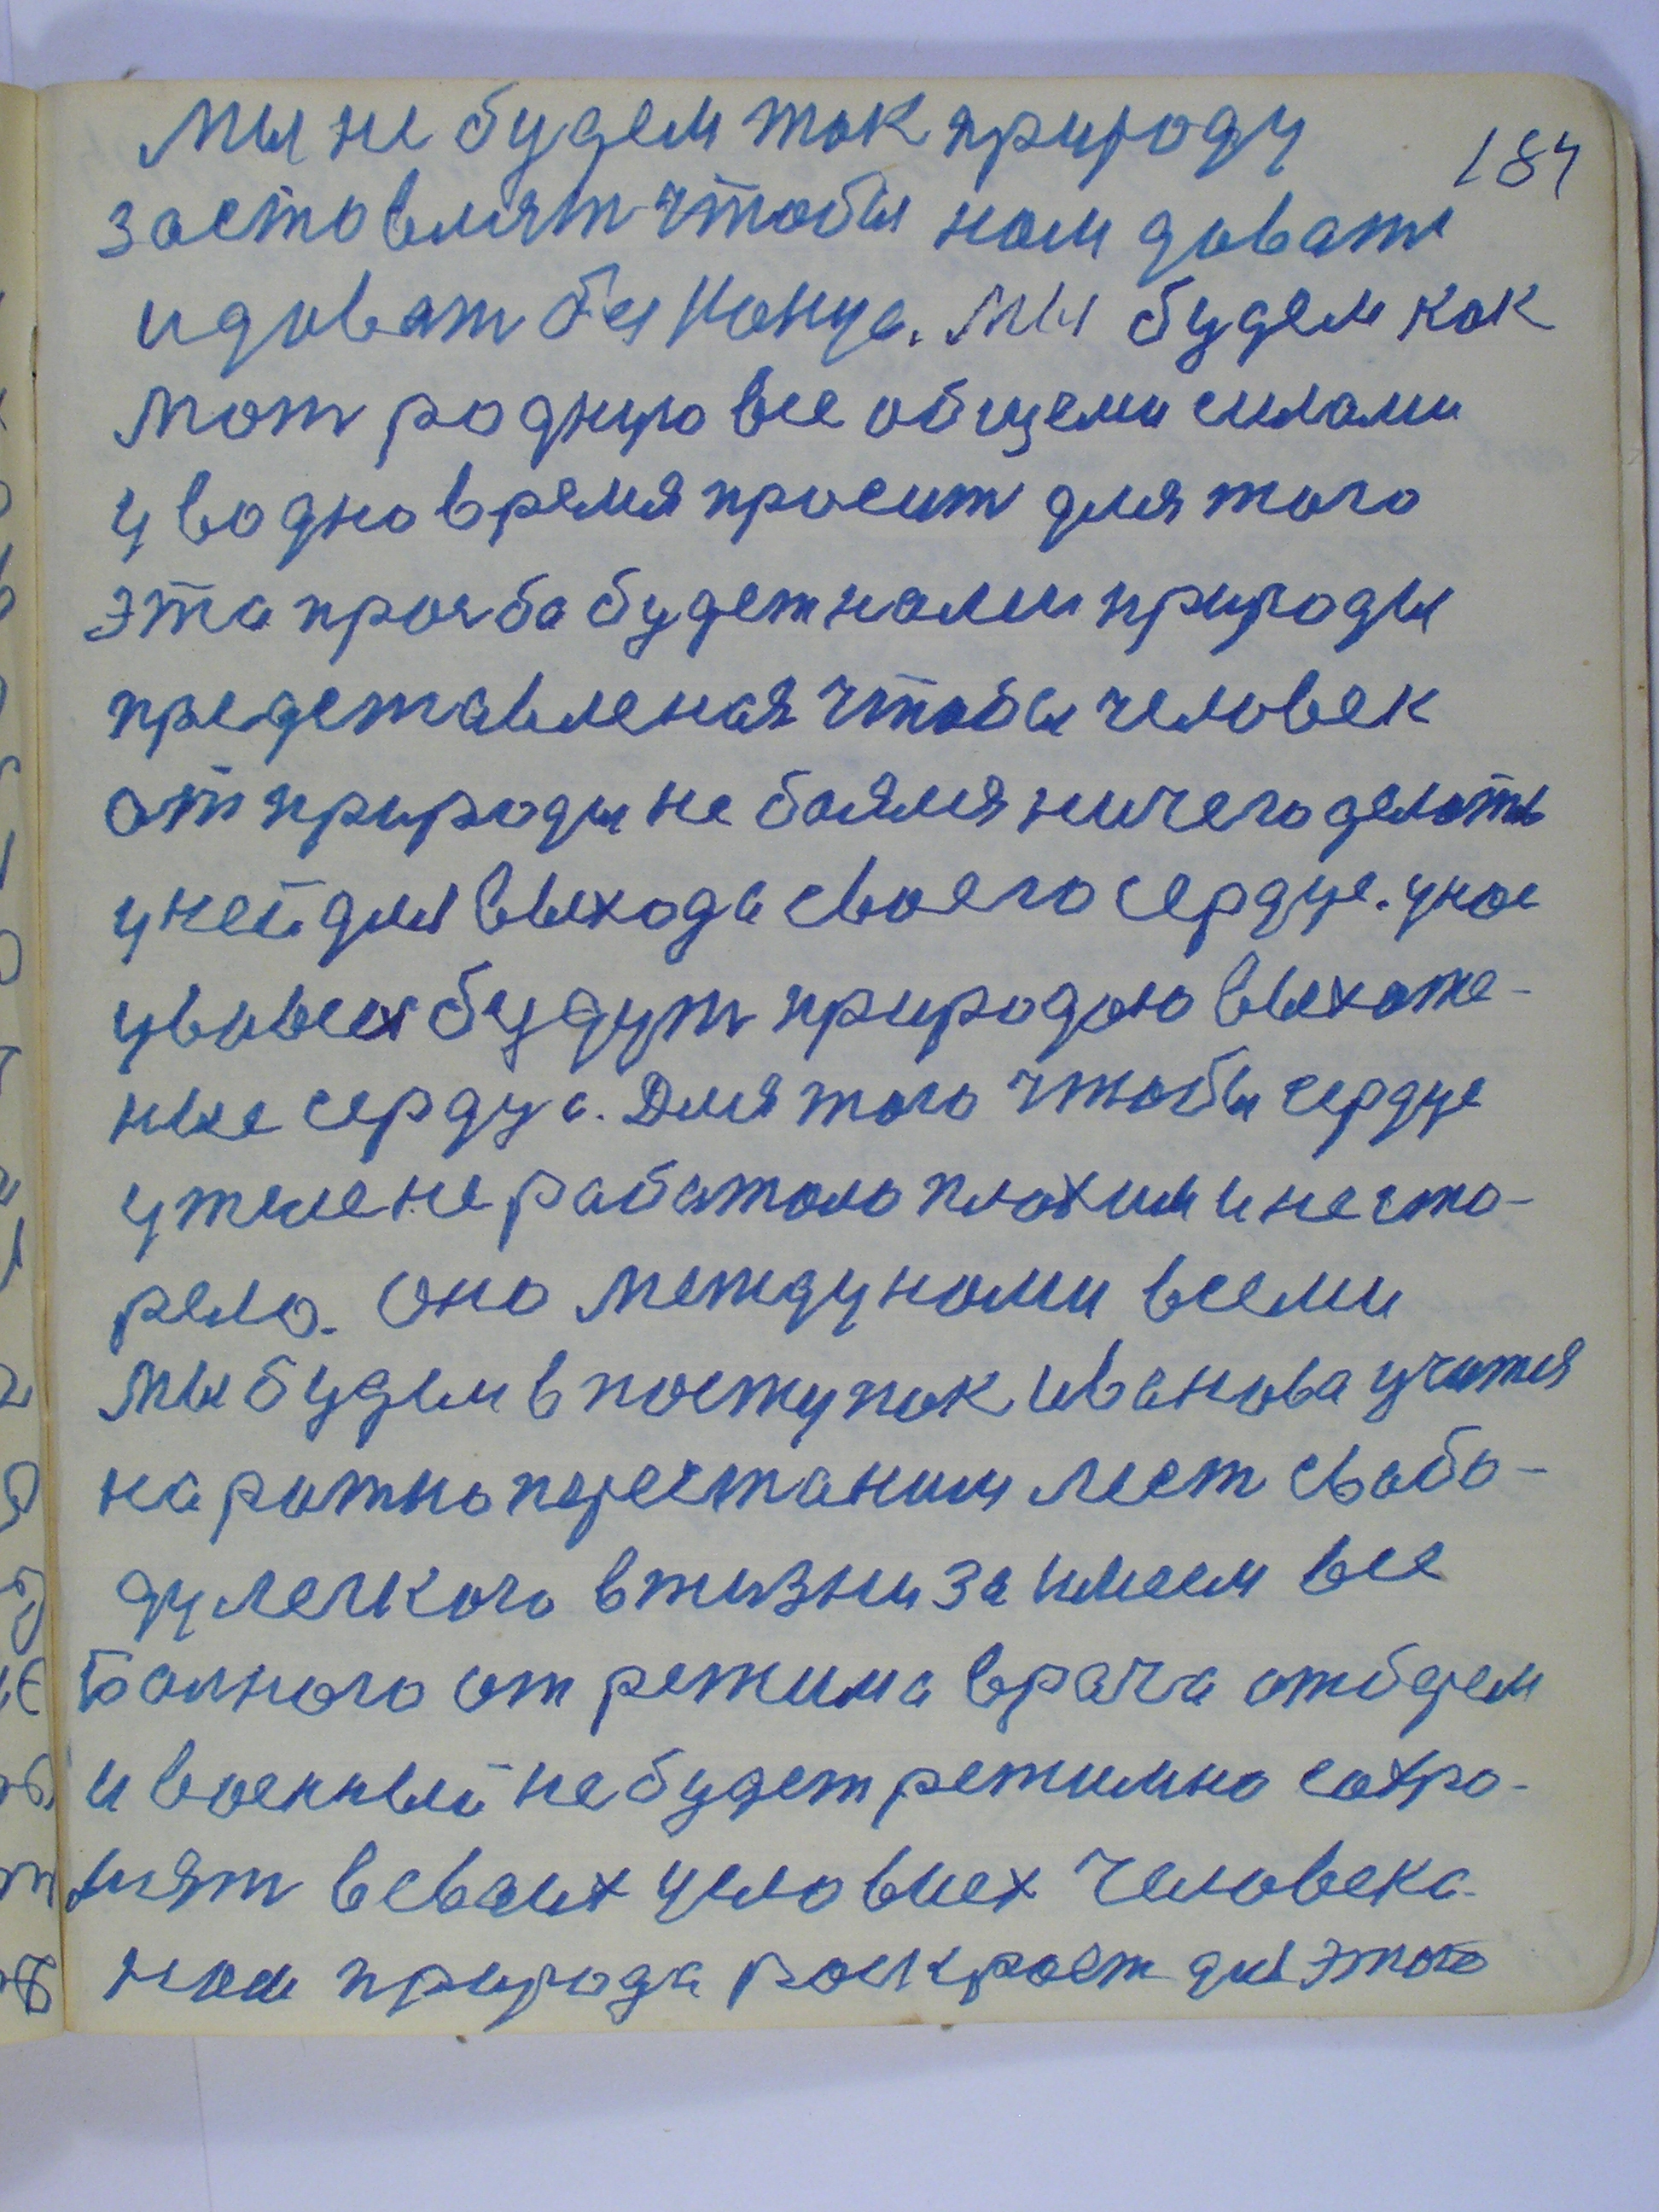 184
Мы не будем так природу
заставлят чтобы нам давати
идават без конца. Мы будем как
мат родную все общеми силами
у водно время просит для того
эта прозба будет нами природы
представленая чтобы человек
от природы не боялся ничего делоть
у ней для выхода своего сердце. у нас
у вовсех будут природою выхоже-
ные сердца. Для того чтобы сердце
у теле не работало плохим и не ста-
рело. Оно между нами всеми
мы будем в поступок иванова учится
например перестаним лест свобо-
ду легкого в жизни займеем все
Балного от режима врача отберем
и военный не будет режимно сохро-
нят в своих условиех человека.
нам природа роскроет для этого